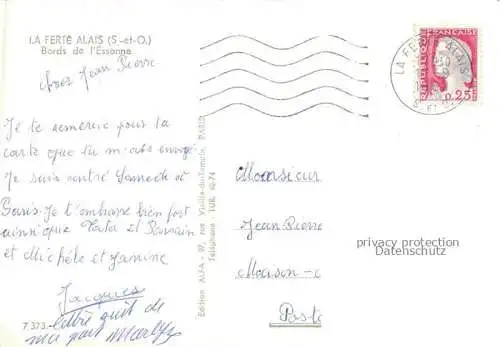 LA FERTE ALAIS (S-et-O.)
Bords de l'Essonne
Cher Jean Pierre
Je te remercie pour la
carte que tu m'as envoyé
Je suis rentré Samedi à
Paris. Je t'embrasse bien fort
ainsi que Tata et Parrain
et Michèle et Janine
Jacques
lettre suit de
ma part
7373.
Edition ALFA - 97, rue Vieille-du-Temple, PARIS
Téléphone : TUR. 60-74
LA FERTE ALAIS
S. ET O.
REPUBLIQUE FRANÇAISE
0,25
Monsieur
Jean Pierre
privacy protection
DATENSCHUTZ
Maison-c
Poste